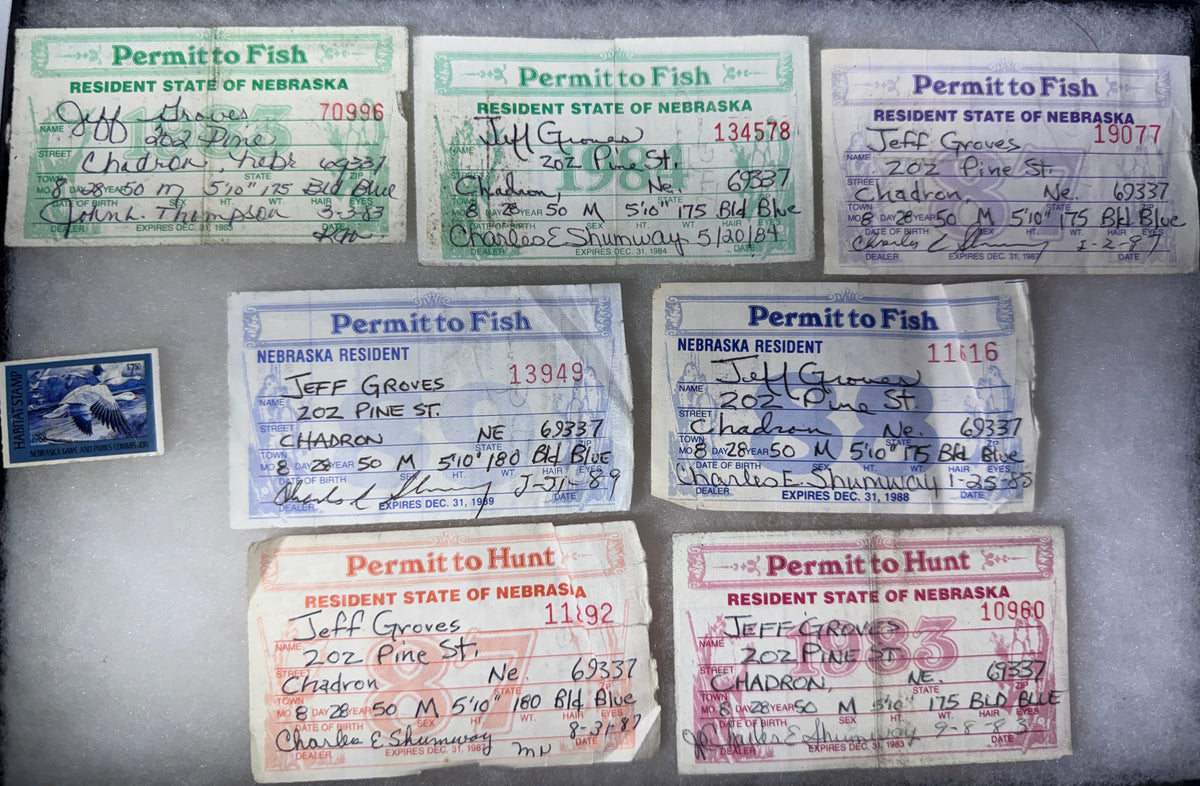 Permit to Fish
RESIDENT STATE OF NEBRASKA
70996
Jeff Groves
NAME
202 Pine
STREET
Chadron, Nebr 69337
TOWN STATE ZIP
MO. 8 DAY 28 YEAR 50 M 5'10" 175 Bld Blue
DATE OF BIRTH SEX HT. WT. HAIR EYES
John L. Thompson 3-3-83
DEALER EXPIRES DEC. 31, 1983 DATE
Permit to Fish
RESIDENT STATE OF NEBRASKA
1984
134578
Jeff Groves
NAME
202 Pine St.
STREET
Chadron, Ne. 69337
TOWN STATE ZIP
MO. 8 DAY 28 YEAR 50 M 5'10" 175 Bld Blue
DATE OF BIRTH SEX HT. WT. HAIR EYES
Charles E Shumway 5/20/84
DEALER EXPIRES DEC. 31, 1984 DATE
Permit to Fish
RESIDENT STATE OF NEBRASKA
87
19077
Jeff Groves
NAME
202 Pine St.
STREET
Chadron, Ne. 69337
TOWN STATE ZIP
MO. 8 DAY 28 YEAR 50 M 5'10" 175 Bld Blue
DATE OF BIRTH SEX HT. WT. HAIR EYES
Charles E Shumway 1-2-87
DEALER EXPIRES DEC. 31, 1987 DATE
$7.50
HABITAT STAMP
1988
NEBRASKA GAME AND PARKS COMMISSION
Permit to Fish
NEBRASKA RESIDENT
13949
JEFF GROVES
NAME
202 PINE ST.
STREET
CHADRON NE 69337
TOWN STATE ZIP
MO. 8 DAY 28 YEAR 50 M 5'10" 180 Bld Blue
DATE OF BIRTH SEX HT. WT. HAIR EYES
Charles E Shumway
DEALER EXPIRES DEC. 31, 1989 DATE
Permit to Fish
NEBRASKA RESIDENT
88
11616
Jeff Groves
NAME
202 Pine St.
STREET
Chadron Ne. 69337
TOWN STATE ZIP
MO. 8 DAY 28 YEAR 50 M 5'10" 175 Bld Blue
DATE OF BIRTH SEX HT. WT. HAIR EYES
Charles E. Shumway 1-25-88
DEALER EXPIRES DEC. 31, 1988 DATE
Permit to Hunt
RESIDENT STATE OF NEBRASKA
87
11892
Jeff Groves
NAME
202 Pine St.
STREET
Chadron Ne. 69337
TOWN STATE ZIP
MO. 8 DAY 28 YEAR 50 M 5'10" 180 Bld Blue
DATE OF BIRTH SEX HT. WT. HAIR EYES
Charles E Shumway 8-31-87
DEALER EXPIRES DEC. 31, 1987 DATE
Permit to Hunt
RESIDENT STATE OF NEBRASKA
1983
10960
JEFF GROVES
NAME
202 PINE ST
STREET
CHADRON, NE. 69337
TOWN STATE ZIP
MO. 8 DAY 28 YEAR 50 M 5'10" 175 BLD BLUE
DATE OF BIRTH SEX HT. WT. HAIR EYES
Charles E Shumway 9-8-83
DEALER EXPIRES DEC. 31, 1983 DATE